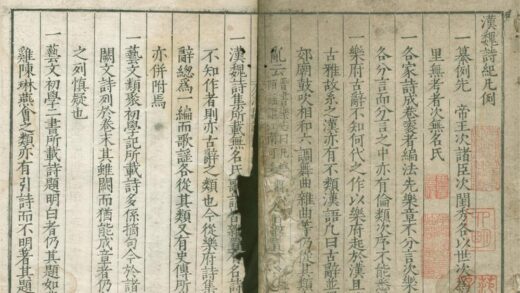 漢魏詩紀凡例
一纂例先帝王次諸臣次閨秀各以世次
里無考者次無名氏
一各家詩成卷袠者編法先樂章不分言次
各分言而分言之中亦有倫類次序不能悉
一樂府古辭不知何代之作以樂府起於漢且
古雅故系之漢亦有不類漢語凡曰古辭並
郊廟鼓吹相和六調舞曲雜曲等仍從其類
亂云
一漢魏詩集所載無名氏歌名詩
不知作者則亦古辭之類也今從樂府詩集
辭總爲一編而歌謠各從其類又有史傳所
亦併附焉
一藝文類聚初學記所載詩多係摘句今於諸
闕文詩列於卷末其雖闕而猶能成章者仍
之列慎疑也
一藝文初學二書所載詩題明白者仍其題如
雞陳琳燕會之類亦有引詩而不明著其題